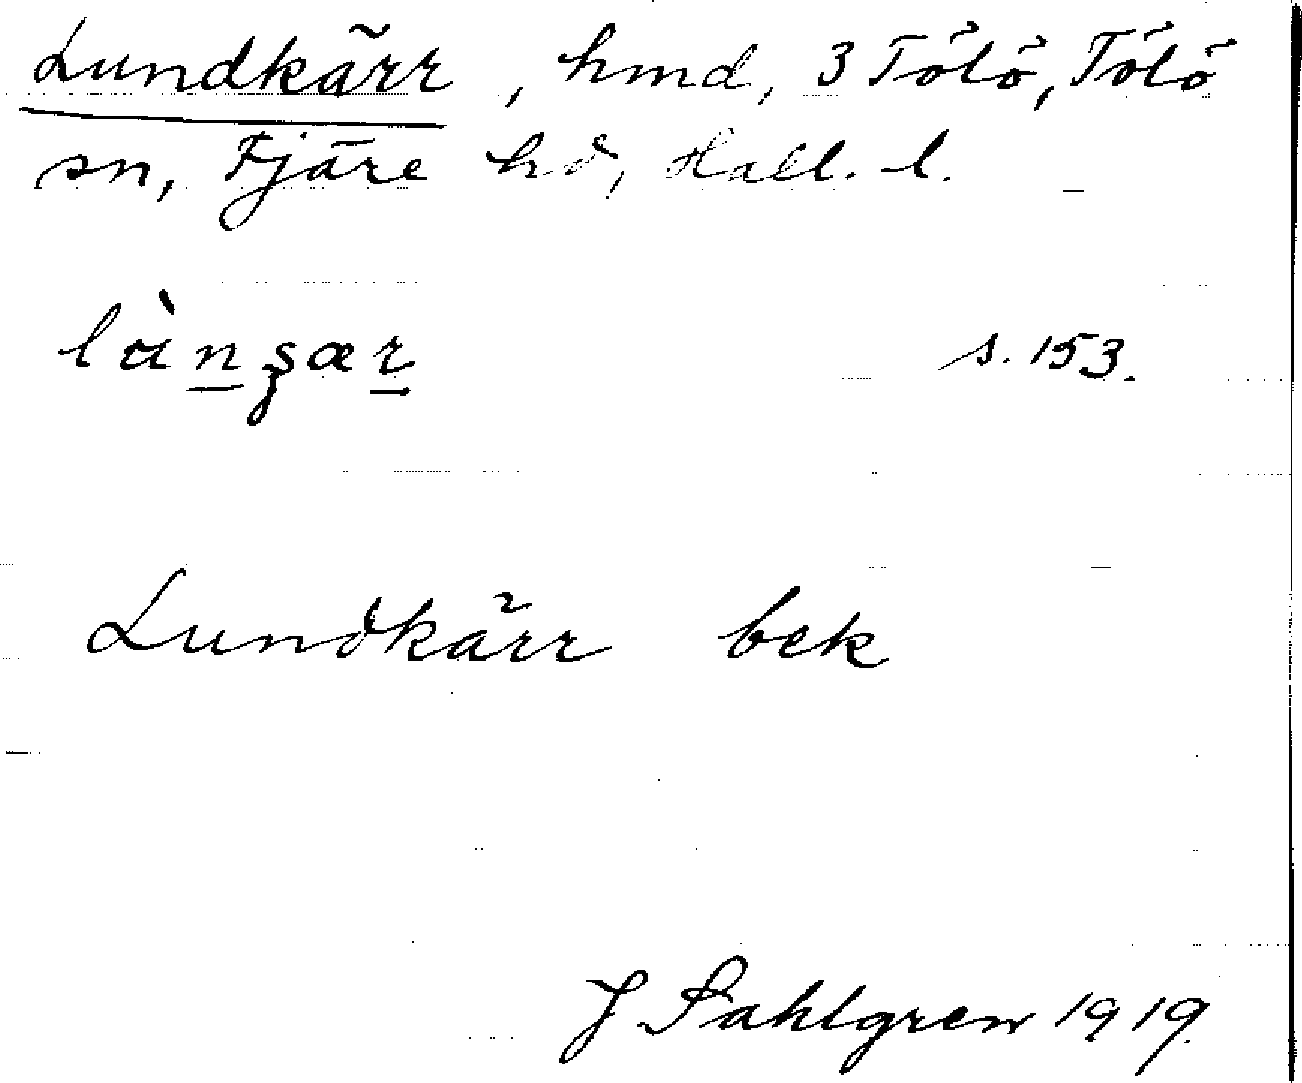 Lundkärr, hmd, 3 Tölö, Tölö
sn, Fjäre hd, Hall. l.
s. 153.
Lundkärr bek
J Sahlgren 1919